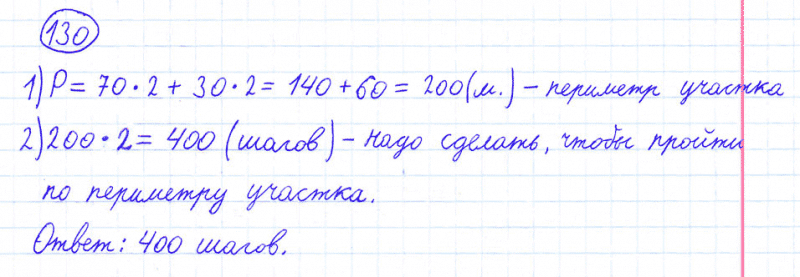 130
1) P = 70 · 2 + 30 · 2 = 140 + 60 = 200 (м.) – периметр участка
2) 200 · 2 = 400 (шагов) – надо сделать, чтобы пройти
по периметру участка.
Ответ: 400 шагов.